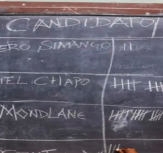 CANDIDATO
ERO SIMANGO
IEL CHAPO
MONDLANE